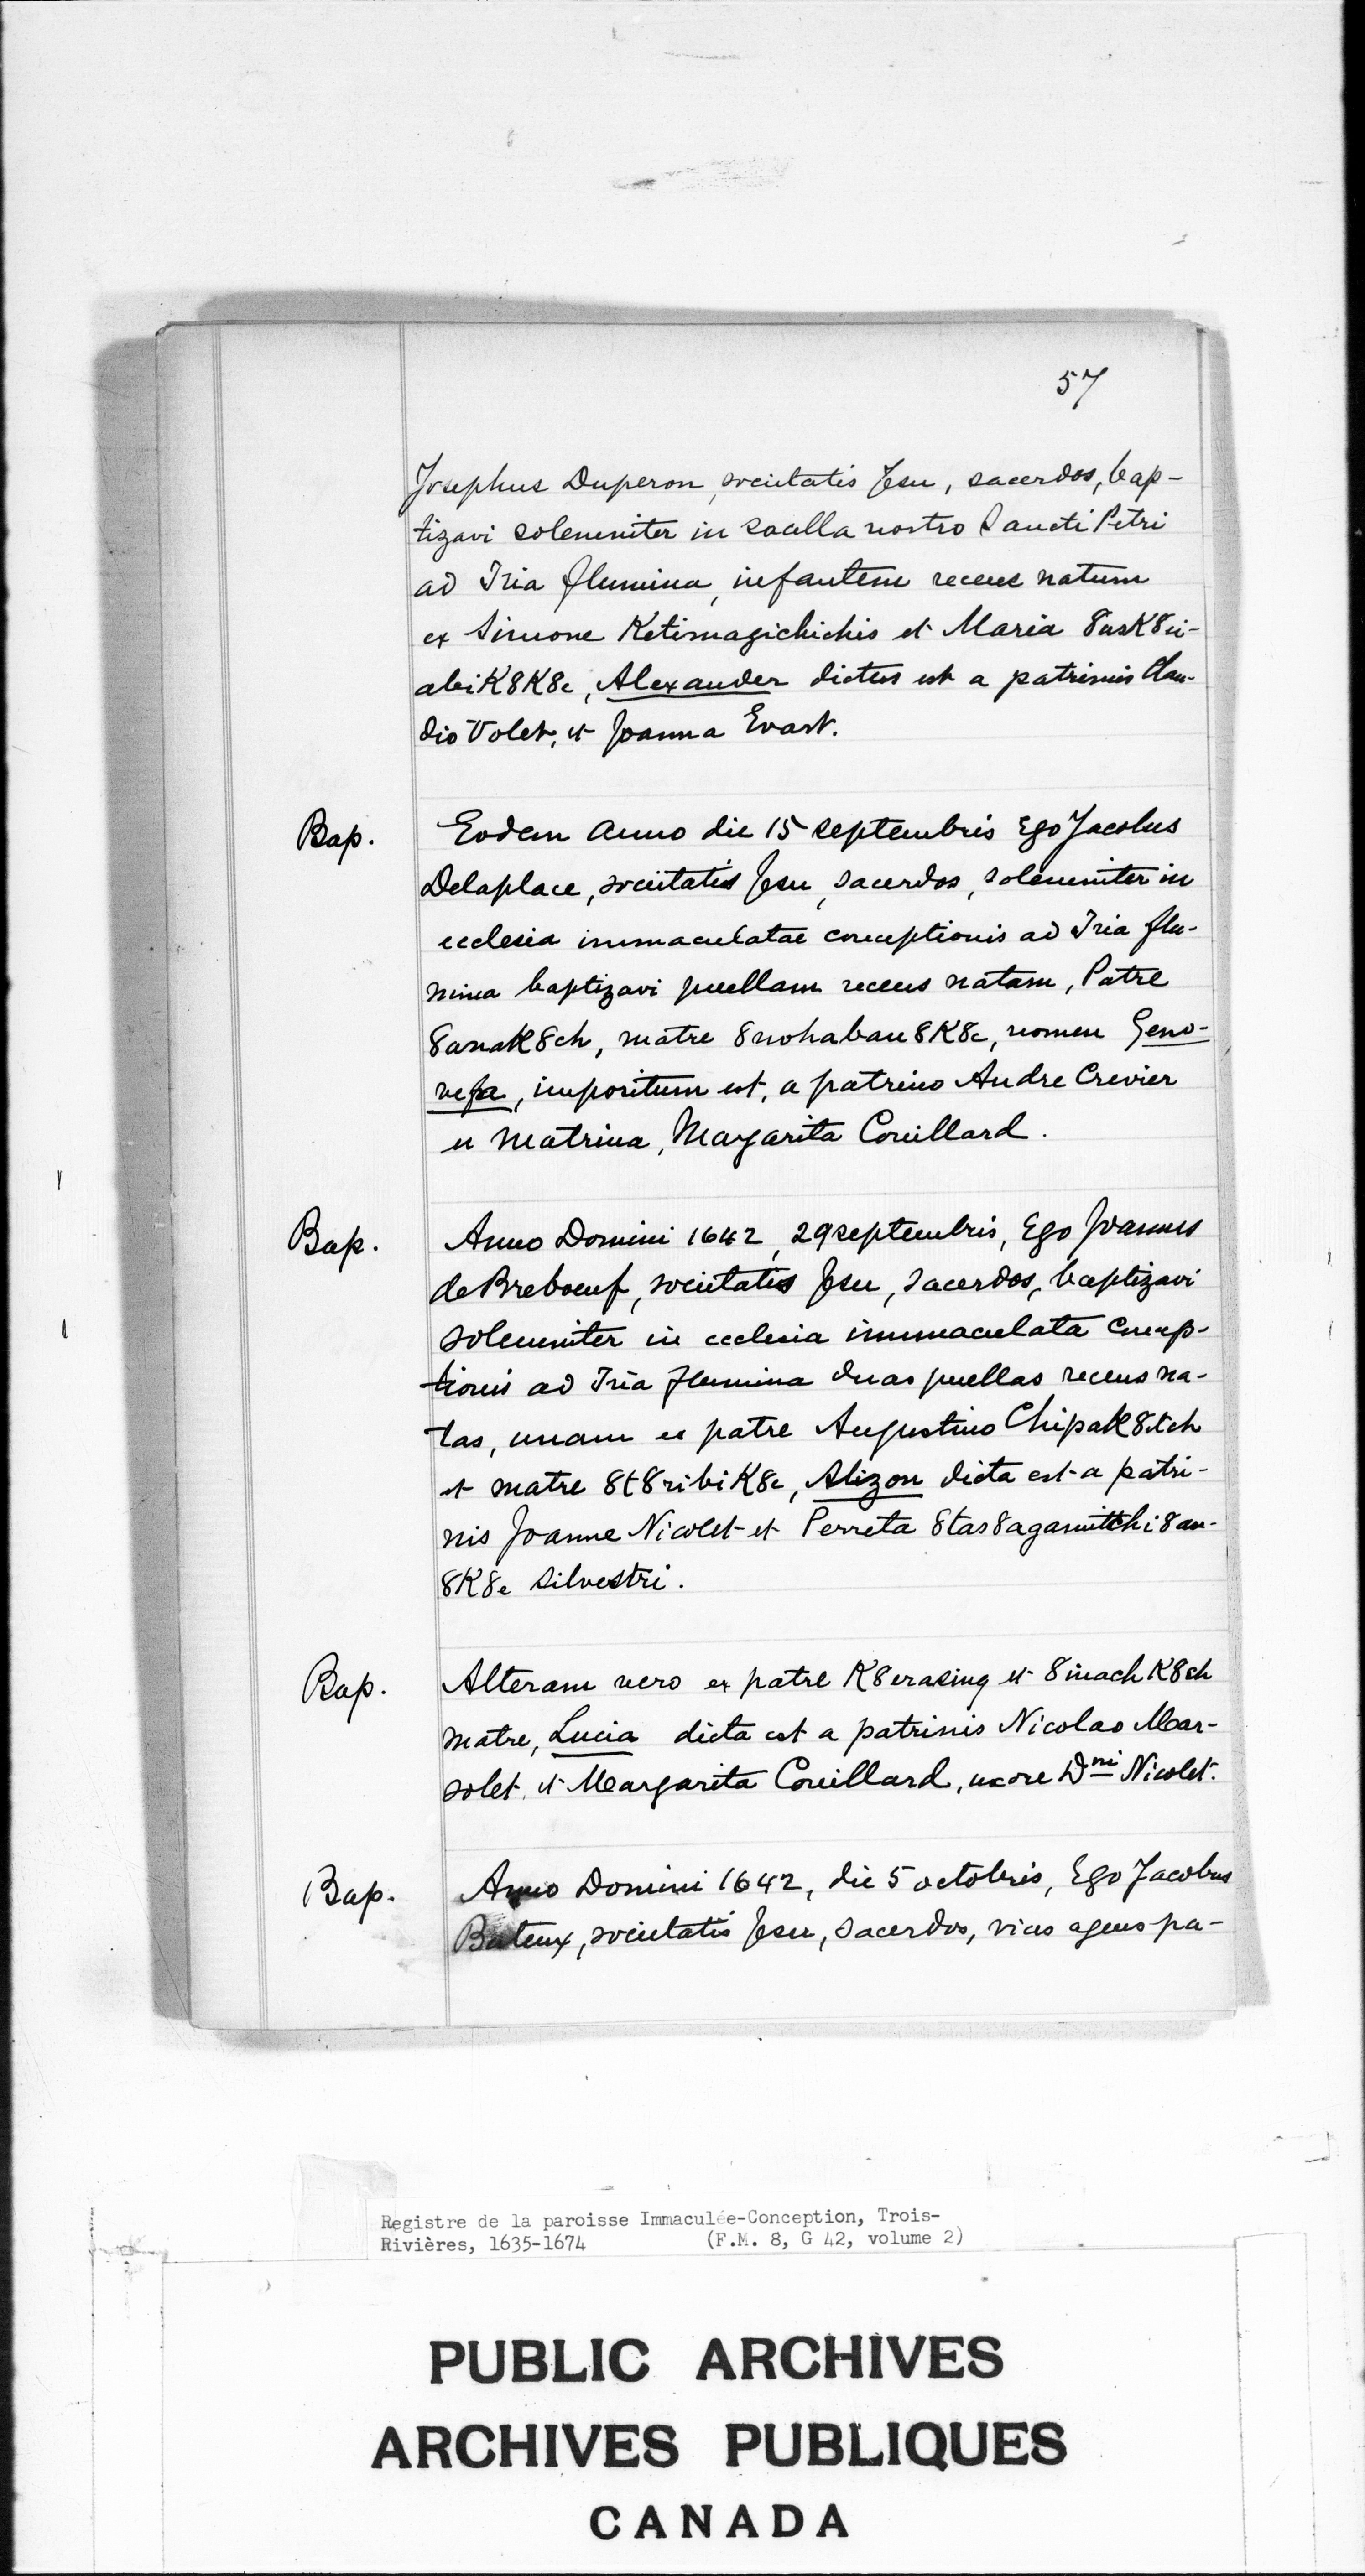 57
Josephus Duperon, societatis Jesu, sacerdos, bap-
tizavi solemniter in sacella nostro Sancti Petri
ad Tria flumina, infantem recens natum
ex Simone Ketimagichichis et Maria 8ask8ii-
abiK8K8e, Alexander dictus est a patrinis Clau-
dio Volet, et Joanna Evart.
Bap. Eodem anno die 15 septembris Ego Jacobus
Delaplace, societatis Jesu, sacerdos, solemniter in
ecclesia immaculatae conceptionis ad Tria flu-
mina baptizavi puellam recens natam, Patre
8anaK8ch, matre 8nohaban8K8e, nomen Geno-
vefa, impositum est, a patrino Andre Crevier
et Matrina, Margarita Couillard.
Bap. Anno Domini 1642, 29 septembris, Ego Joannes
de Breboeuf, societatis Jesu, sacerdos, baptizavi
solemniter in ecclesia immaculata concep-
tionis ad Tria flumina duas puellas recens na-
tas, unam ex patre Augustino ChipaK8tch
et matre 8t8ribiK8e, Alizon dicta est a patri-
nis Joanne Nicolet et Perreta 8tas8agamitchi8an-
8K8e silvestri.
Bap. Alteram vero ex patre K8erasing et 8inachK8ch
matre, Lucia dicta est a patrinis Nicolao Mar-
solet, et Margarita Couillard, uxore Dni Nicolet.
Bap. Anno Domini 1642, die 5 octobris, Ego Jacobus
Buteux, societatis Jesu, sacerdos, vices agens pa-
Registre de la paroisse Immaculée-Conception, Trois-
Rivières, 1635-1674 (F.M. 8, G 42, volume 2)
PUBLIC ARCHIVES
ARCHIVES PUBLIQUES
CANADA